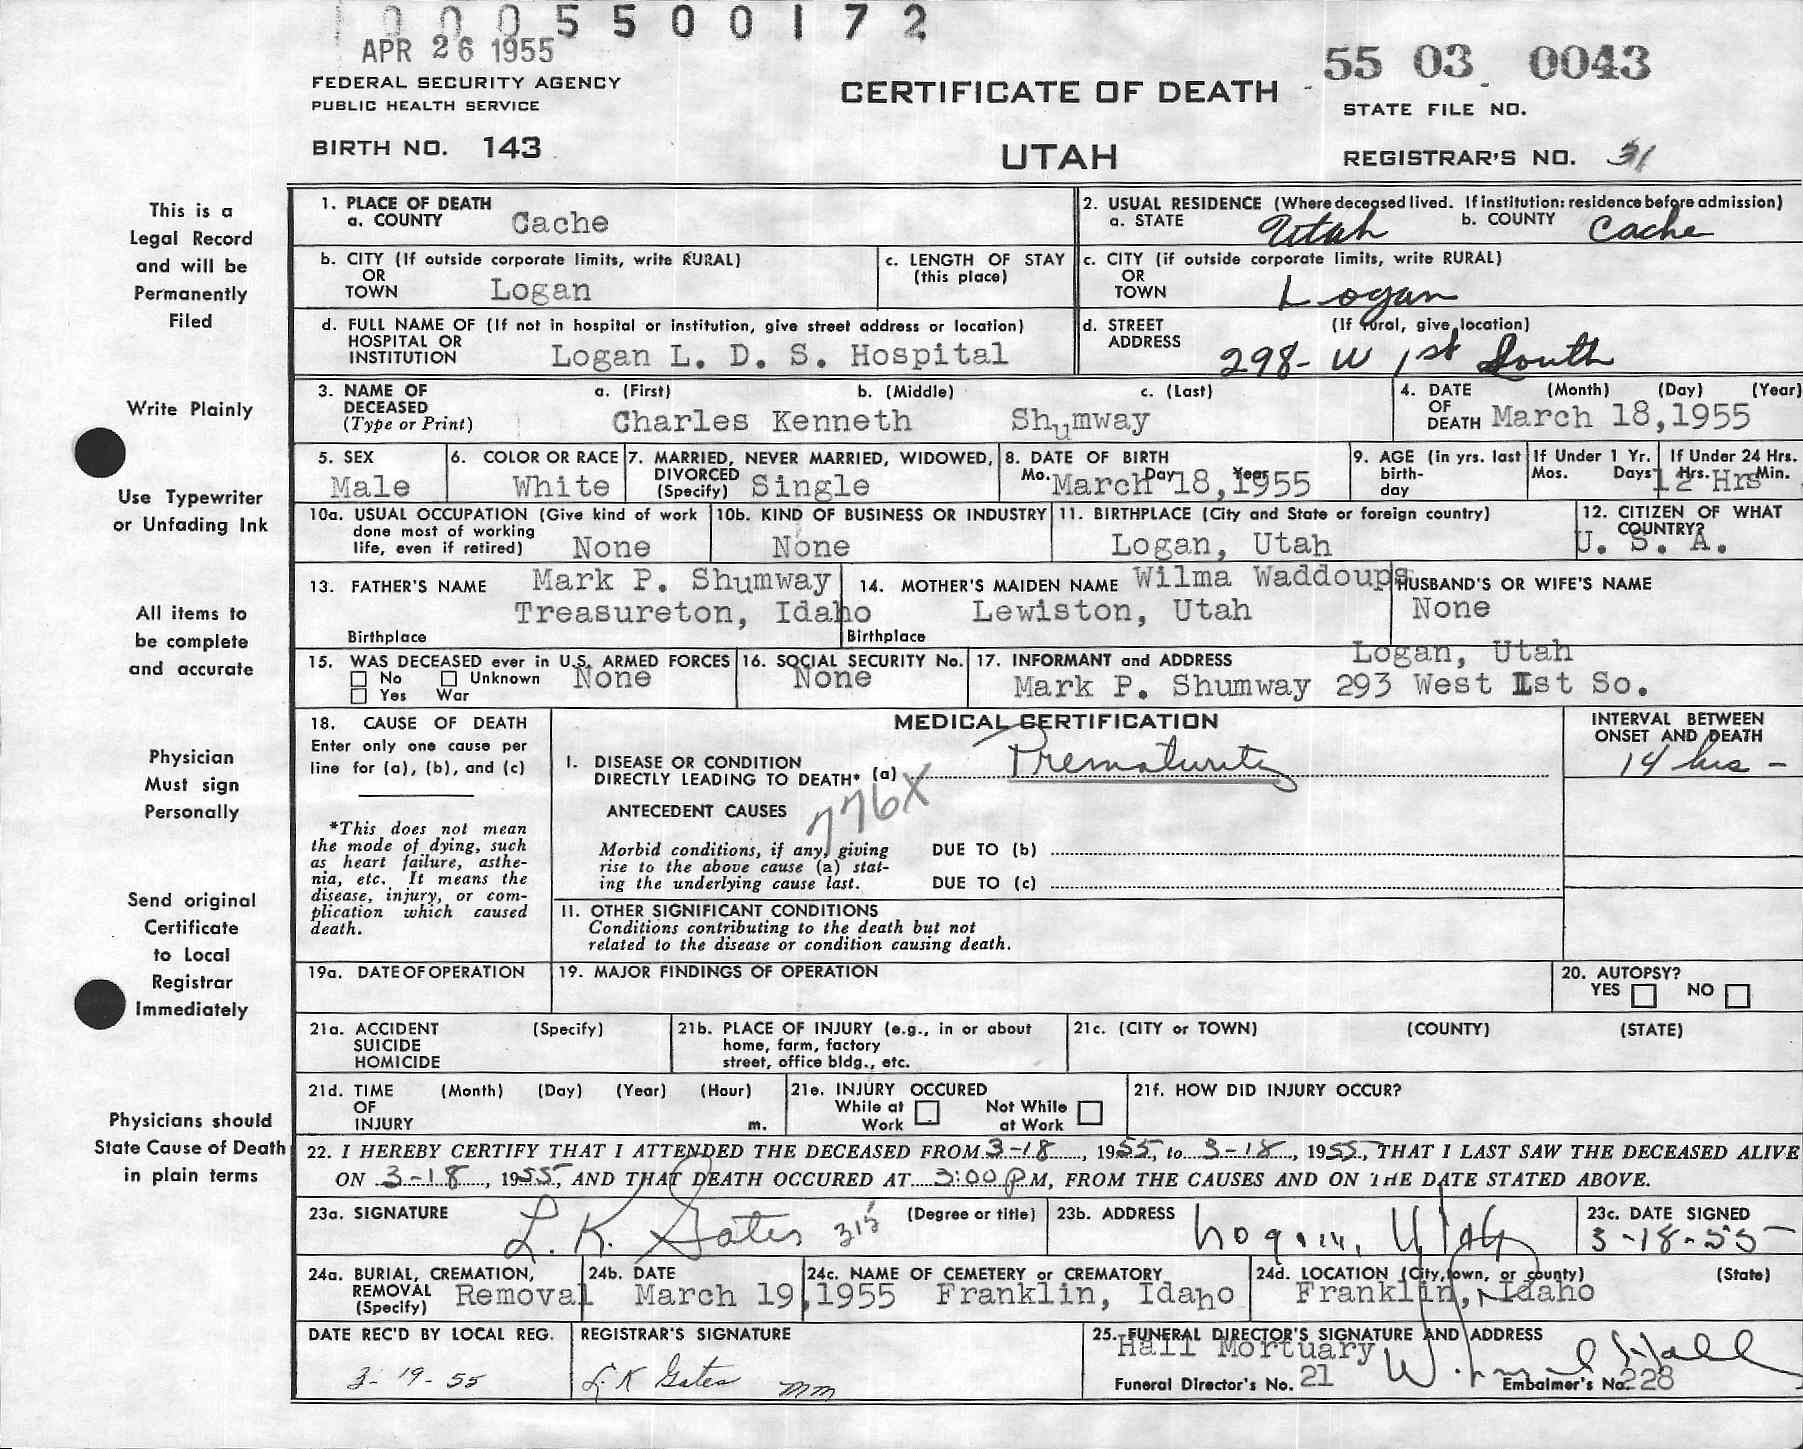 10005500172
APR 26 1955
55 03 0043
FEDERAL SECURITY AGENCY
PUBLIC HEALTH SERVICE
CERTIFICATE OF DEATH
STATE FILE NO.
BIRTH NO. 143
UTAH
REGISTRAR'S NO. 31
This is a
Legal Record
and will be
Permanently
Filed
Write Plainly
Use Typewriter
or Unfading Ink
All items to
be complete
and accurate
Physician
Must sign
Personally
Send original
Certificate
to Local
Registrar
Immediately
Physicians should
State Cause of Death
in plain terms
1. PLACE OF DEATH
a. COUNTY Cache
2. USUAL RESIDENCE (Where deceased lived. If institution: residence before admission)
a. STATE Utah b. COUNTY Cache
b. CITY (If outside corporate limits, write RURAL)
OR
TOWN Logan
c. LENGTH OF STAY
(this place)
c. CITY (if outside corporate limits, write RURAL)
OR
TOWN Logan
d. FULL NAME OF (If not in hospital or institution, give street address or location)
HOSPITAL OR
INSTITUTION Logan L. D. S. Hospital
d. STREET (If rural, give location)
ADDRESS 298- W 1st South
3. NAME OF a. (First) b. (Middle) c. (Last)
DECEASED
(Type or Print) Charles Kenneth Shumway
4. DATE (Month) (Day) (Year)
OF
DEATH March 18,1955
5. SEX
Male
6. COLOR OR RACE
White
7. MARRIED, NEVER MARRIED, WIDOWED,
DIVORCED
(Specify) Single
8. DATE OF BIRTH
Mo. Day Year
March 18,1955
9. AGE (in yrs. last
birth-
day
If Under 1 Yr.
Mos. Days
If Under 24 Hrs.
Hrs. Min.
12 Hrs
10a. USUAL OCCUPATION (Give kind of work
done most of working
life, even if retired) None
10b. KIND OF BUSINESS OR INDUSTRY
None
11. BIRTHPLACE (City and State or foreign country)
Logan, Utah
12. CITIZEN OF WHAT
COUNTRY?
U. S. A.
13. FATHER'S NAME Mark P. Shumway
Treasureton, Idaho
Birthplace
14. MOTHER'S MAIDEN NAME Wilma Waddoups
Lewiston, Utah
Birthplace
HUSBAND'S OR WIFE'S NAME
None
15. WAS DECEASED ever in U.S. ARMED FORCES
No Unknown None
Yes War
16. SOCIAL SECURITY No.
None
17. INFORMANT and ADDRESS Logan, Utah
Mark P. Shumway 293 West 1st So.
18. CAUSE OF DEATH
Enter only one cause per
line for (a), (b), and (c)
*This does not mean
the mode of dying, such
as heart failure, asthe-
nia, etc. It means the
disease, injury, or com-
plication which caused
death.
MEDICAL CERTIFICATION
INTERVAL BETWEEN
ONSET AND DEATH
I. DISEASE OR CONDITION
DIRECTLY LEADING TO DEATH* (a) Prematurity 14 hrs -
776X
ANTECEDENT CAUSES
Morbid conditions, if any, giving
rise to the above cause (a) stat-
ing the underlying cause last.
DUE TO (b)
DUE TO (c)
II. OTHER SIGNIFICANT CONDITIONS
Conditions contributing to the death but not
related to the disease or condition causing death.
19a. DATE OF OPERATION
19. MAJOR FINDINGS OF OPERATION
20. AUTOPSY?
YES NO
21a. ACCIDENT (Specify)
SUICIDE
HOMICIDE
21b. PLACE OF INJURY (e.g., in or about
home, farm, factory
street, office bldg., etc.
21c. (CITY or TOWN) (COUNTY) (STATE)
21d. TIME (Month) (Day) (Year) (Hour)
OF
INJURY m.
21e. INJURY OCCURED
While at Work Not While at Work
21f. HOW DID INJURY OCCUR?
22. I HEREBY CERTIFY THAT I ATTENDED THE DECEASED FROM 3-18, 1955, to 3-18, 1955, THAT I LAST SAW THE DECEASED ALIVE
ON 3-18, 1955, AND THAT DEATH OCCURED AT 3:00 P M, FROM THE CAUSES AND ON THE DATE STATED ABOVE.
23a. SIGNATURE L. K. Gates 315 (Degree or title)
23b. ADDRESS Logan, Utah
23c. DATE SIGNED
3-18-55
24a. BURIAL, CREMATION,
REMOVAL
(Specify) Removal
24b. DATE
March 19,1955
24c. NAME OF CEMETERY or CREMATORY
Franklin, Idaho
24d. LOCATION (City, town, or county) (State)
Franklin, Idaho
DATE REC'D BY LOCAL REG.
3-19-55
REGISTRAR'S SIGNATURE
L. K Gates mm
25. FUNERAL DIRECTOR'S SIGNATURE AND ADDRESS
Hall Mortuary
Funeral Director's No. 21
Embalmer's No. 228